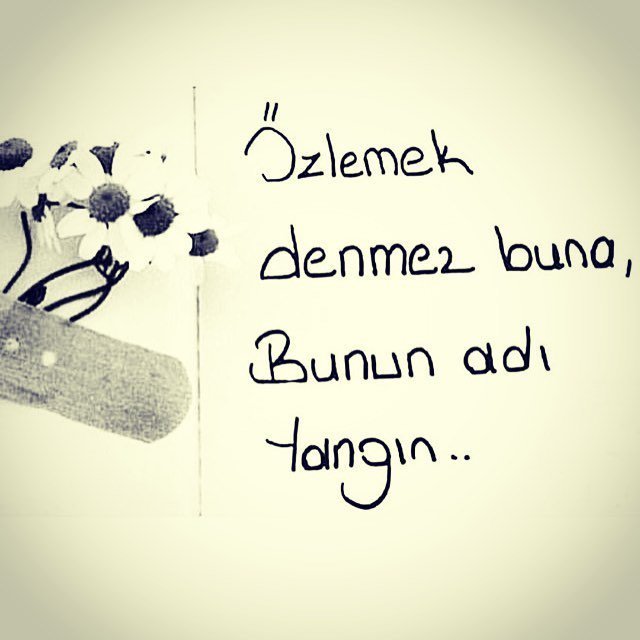 Özlemek
denmez buna,
Bunun adı
Yangın..